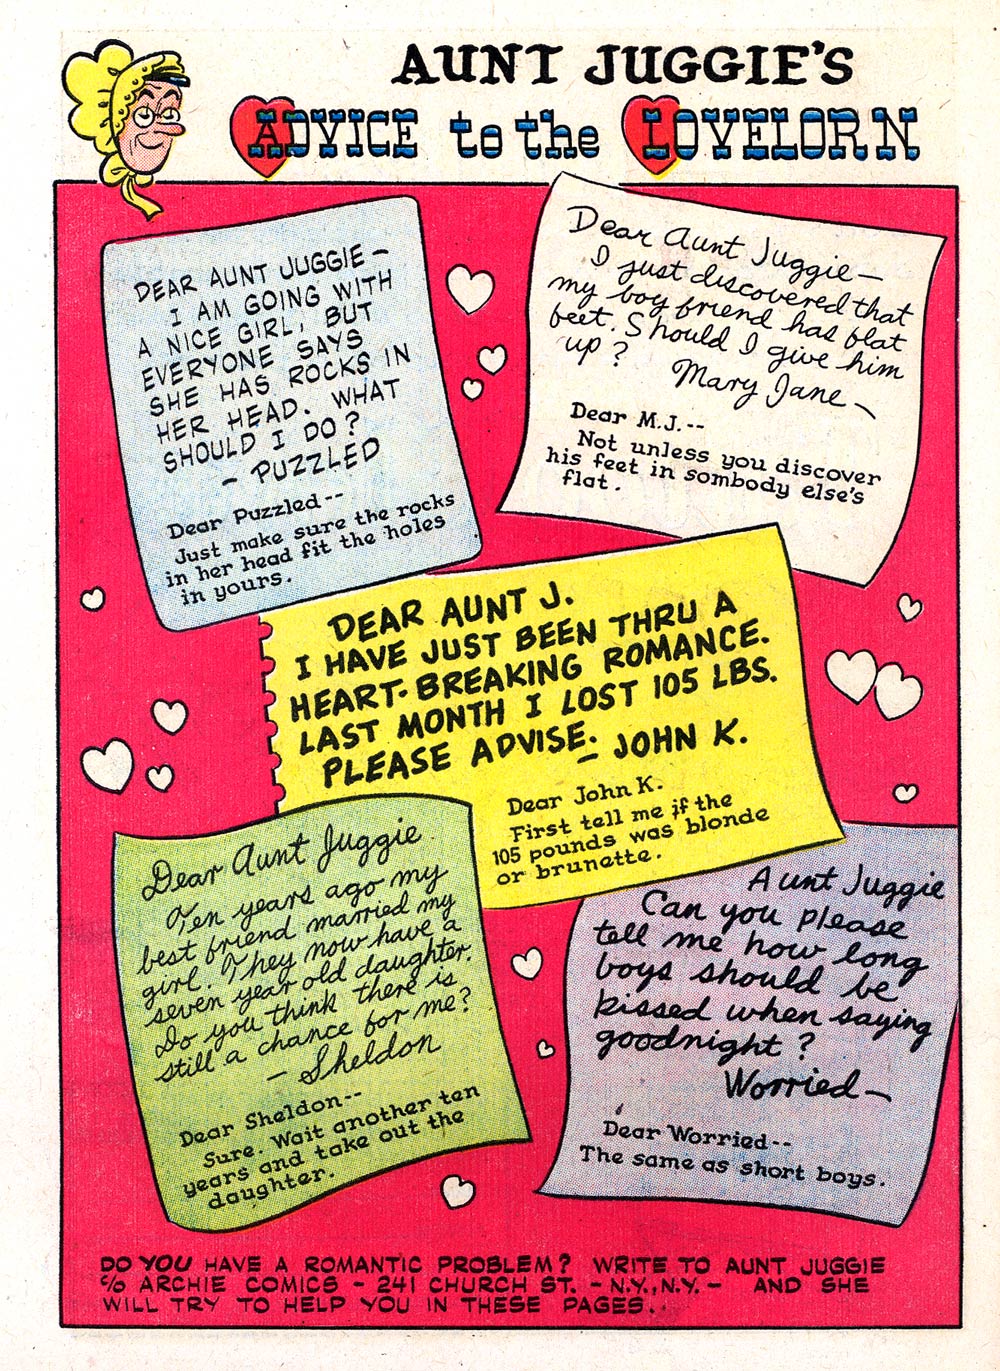 AUNT JUGGIE'S
ADVICE to the LOVELORN
DEAR AUNT JUGGIE —
I AM GOING WITH
A NICE GIRL, BUT
EVERYONE SAYS
SHE HAS ROCKS IN
HER HEAD. WHAT
SHOULD I DO?
— PUZZLED
Dear Puzzled--
Just make sure the rocks
in her head fit the holes
in yours.
Dear Aunt Juggie—
I just discovered that
my boy friend has flat
feet. Should I give him
up?
Mary Jane—
Dear M.J.--
Not unless you discover
his feet in sombody else's
flat.
DEAR AUNT J.
I HAVE JUST BEEN THRU A
HEART-BREAKING ROMANCE.
LAST MONTH I LOST 105 LBS.
PLEASE ADVISE.
— JOHN K.
Dear John K.
First tell me if the
105 pounds was blonde
or brunette.
Dear Aunt Juggie
Ten years ago my
best friend married my
girl. They now have a
seven year old daughter.
Do you think there is
still a chance for me?
— Sheldon
Dear Sheldon--
Sure. Wait another ten
years and take out the
daughter.
Aunt Juggie
Can you please
tell me how long
boys should be
kissed when saying
goodnight?
Worried—
Dear Worried--
The same as short boys.
DO YOU HAVE A ROMANTIC PROBLEM? WRITE TO AUNT JUGGIE
c/o ARCHIE COMICS - 241 CHURCH ST. - N.Y., N.Y. - AND SHE
WILL TRY TO HELP YOU IN THESE PAGES..